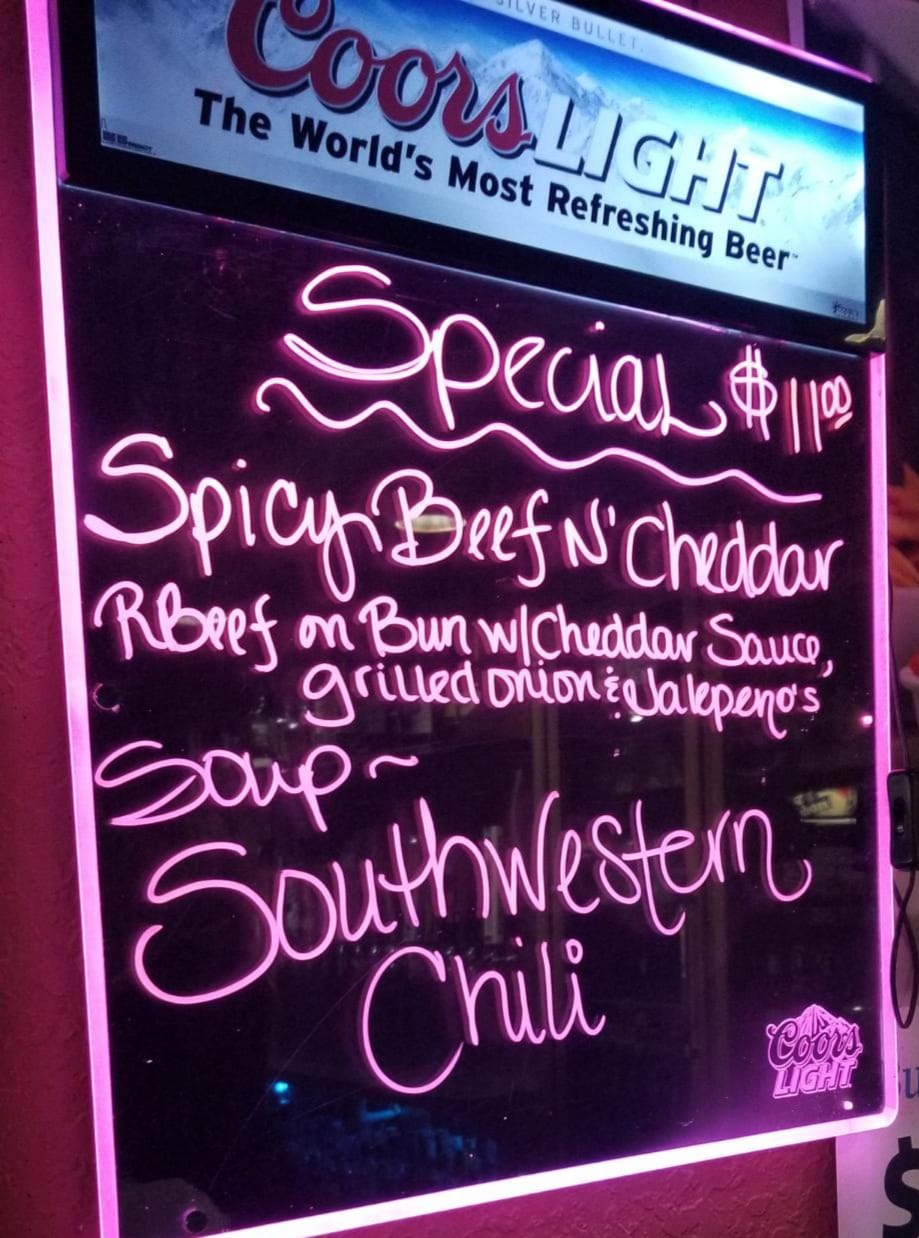 SILVER BULLET.
Coors LIGHT
The World's Most Refreshing Beer™
Special $11.00
Spicy Beef N' Cheddar
RBeef on Bun w/Cheddar Sauce,
grilled onion & Jalepeno's
Soup~
Southwestern
Chili
Coors
LIGHT
$